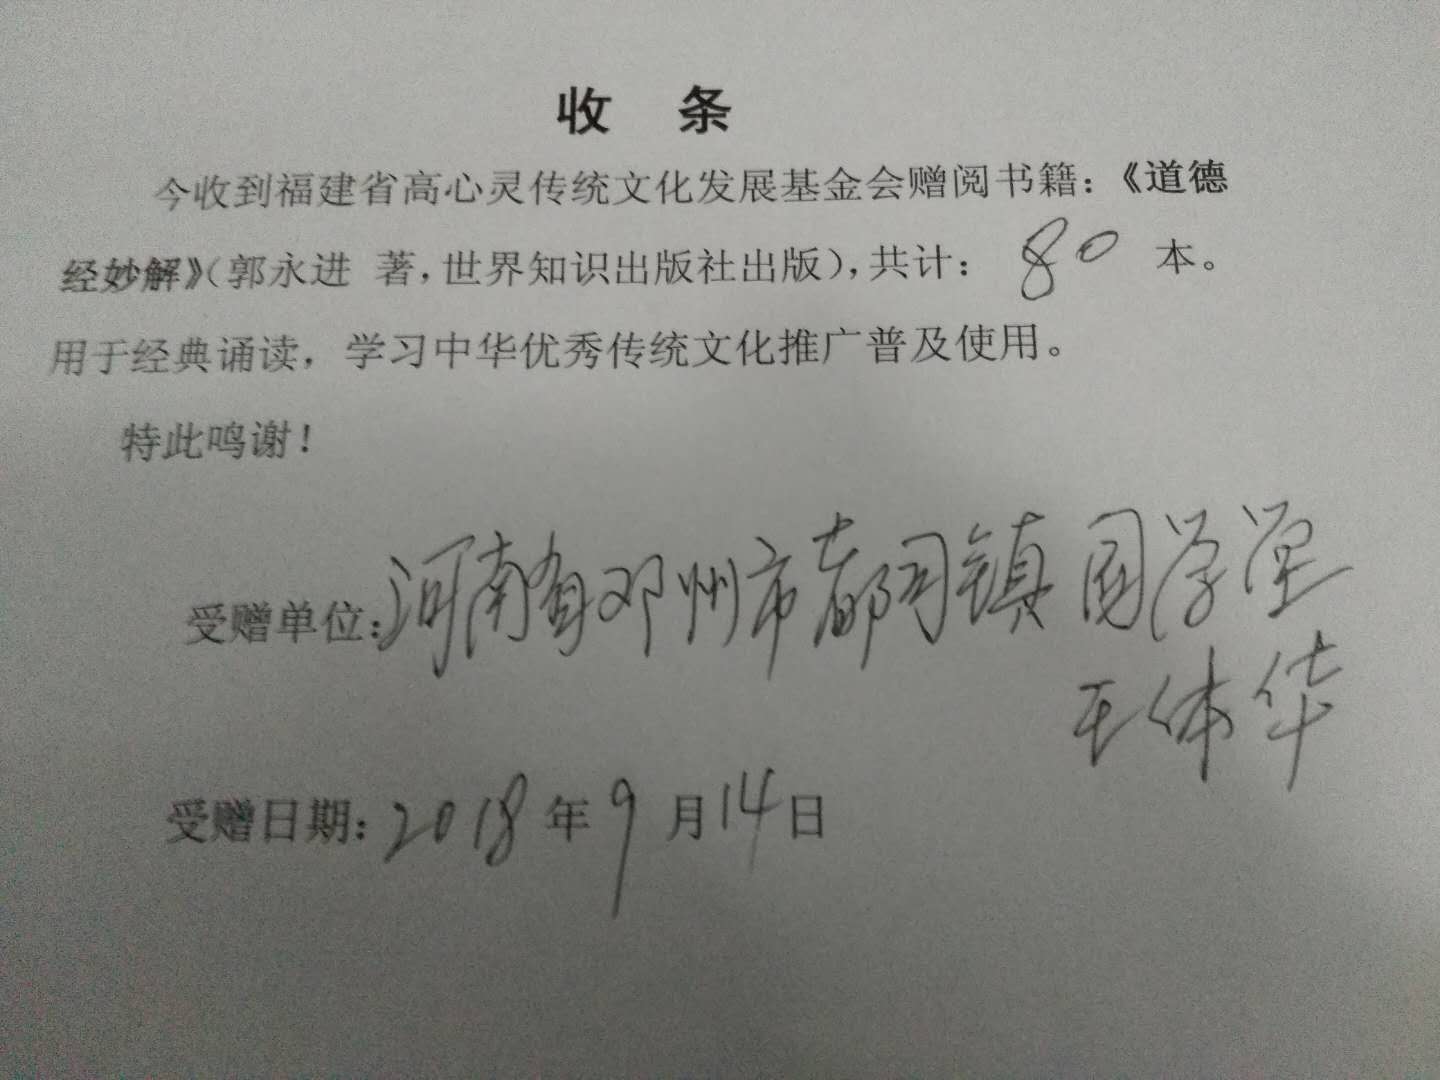 收 条
今收到福建省高心灵传统文化发展基金会赠阅书籍：《道德
经妙解》（郭永进 著，世界知识出版社出版），共计： 80 本。
用于经典诵读，学习中华优秀传统文化推广普及使用。
特此鸣谢！
受赠单位：河南省邓州市都司镇国学堂
王体华
受赠日期：2018年9月14日